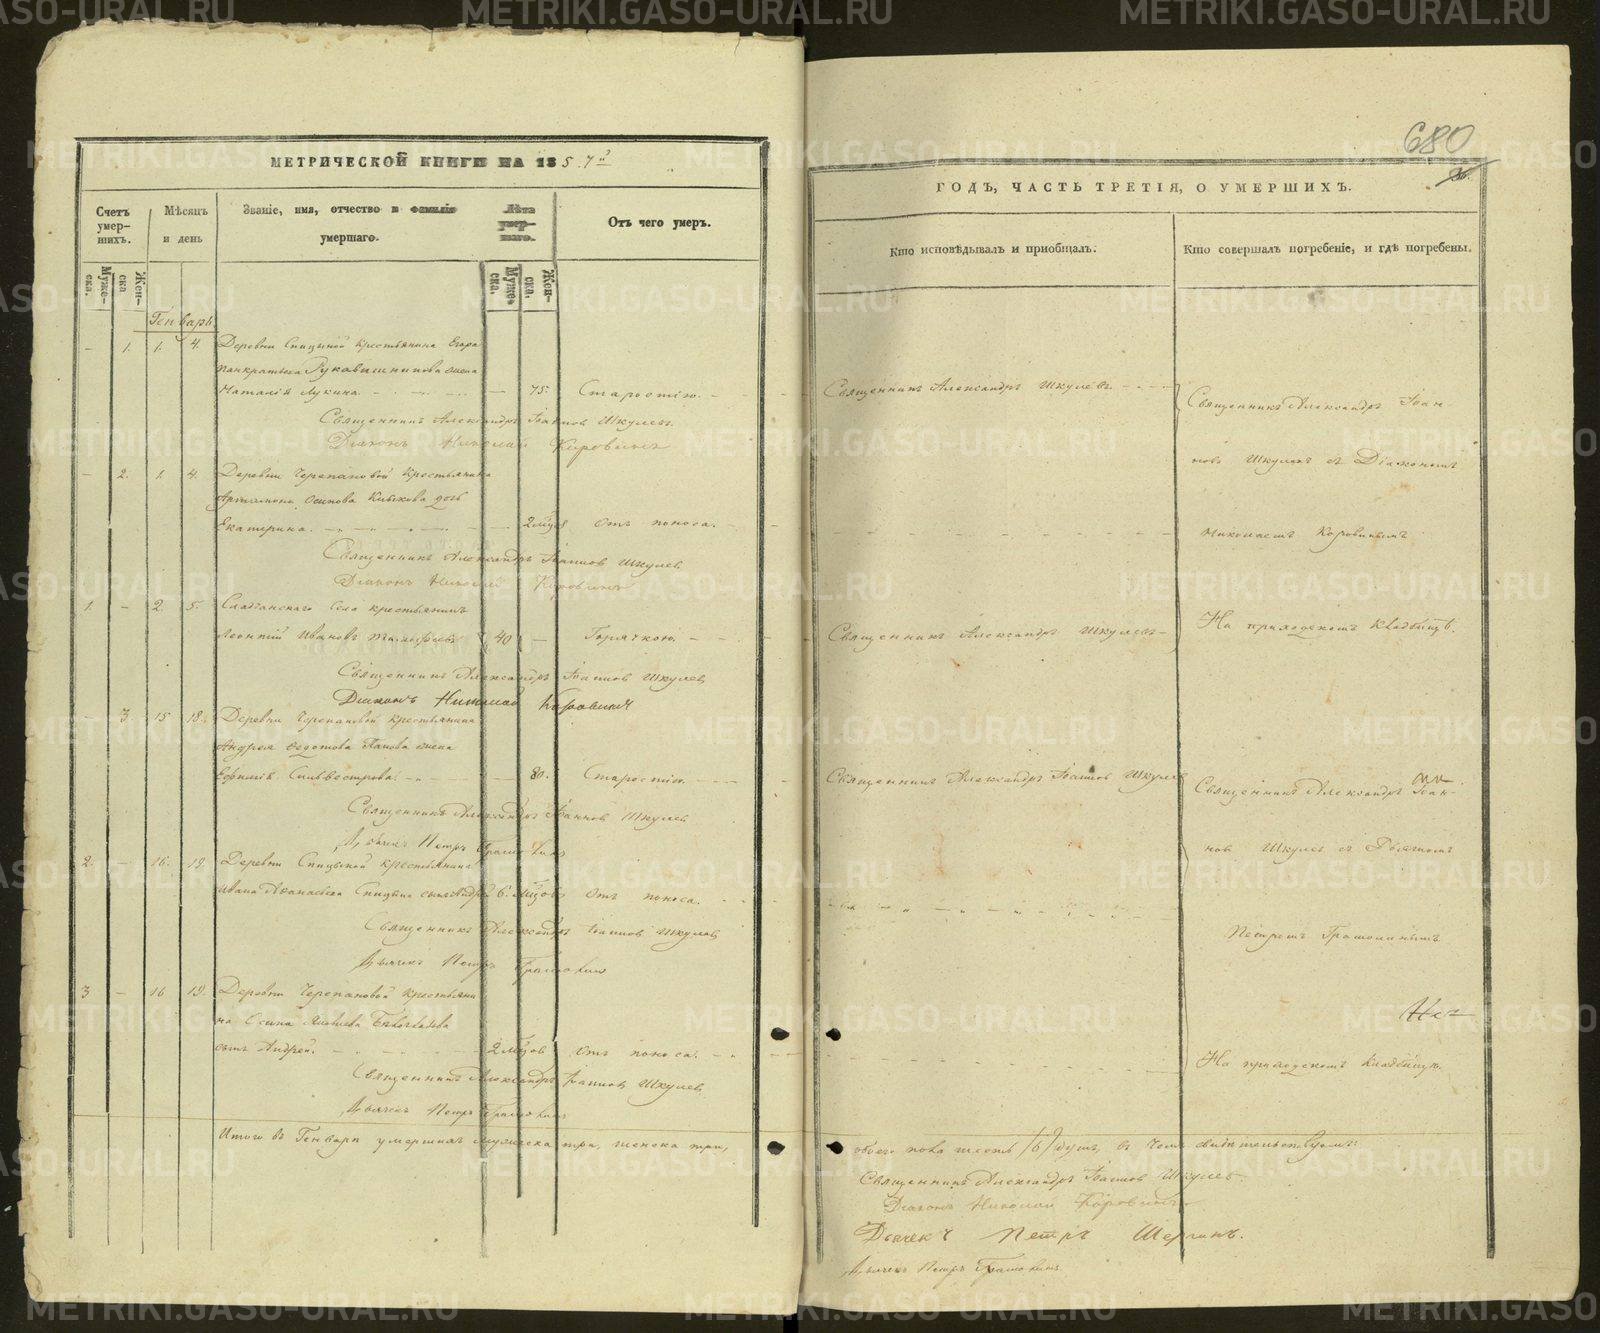 МЕТРИЧЕСКОЙ КНИГИ НА 185 7й
Счетъ умер-шихъ.
Муже-ска.
Жен-ска
Мѣсяцъ и день
Званіе, имя, отчество и фамилія умершаго.
Лѣта умер-шаго.
Муже-ска.
Жен-ска.
Отъ чего умеръ.
Генварь
- 1. 1. 4. Деревни Спицыной крестьянина Егора
Панкратьева Рукавишникова жена
Наталія Лукина. 75. Старостію.
Священникъ Александръ Іоанновъ Шкулевъ.
Діаконъ Николай Коровинъ
- 2. 1. 4. Деревни Черепановой крестьянина
Артамона Осипова дочь
Екатерина. Отъ поноса.
Священникъ Александръ Іоанновъ Шкулевъ
Діаконъ Николай Коровинъ
1. - 2. 5. села крестьянинъ
Леонтій Ивановъ 40 - Горячкою.
Священникъ Александръ Іоанновъ Шкулевъ
Діаконъ Николай Коровинъ
- 3 15 18. Деревни Черепановой крестьянина
Андрея Федотова Панова жена
Ефимія Сильвестрова. 80. Старостію.
Священникъ Александръ Іоанновъ Шкулевъ
Дьячекъ Петръ
2. - 16. 19. Деревни Спицыной крестьянина
Ивана Афанасьева Спицына сынъ Андрей 6. мцовъ Отъ поноса.
Священникъ Александръ Іоанновъ Шкулевъ
Дьячекъ Петръ
3 - 16 19. Деревни Черепановой крестьяни
на Осипа сынъ Андрей. 2 мцовъ Отъ поноса.
Священникъ Александръ Іоанновъ Шкулевъ
Дьячекъ Петръ
Итого въ Генварѣ умершихъ мужеска три, женска три,
680
ГОДЪ, ЧАСТЬ ТРЕТІЯ, О УМЕРШИХЪ.
Кто исповѣдывалъ и пріобщалъ.
Кто совершалъ погребеніе, и гдѣ погребены.
Священникъ Александръ Шкулевъ
Священникъ Александръ Іоан-
новъ Шкулевъ съ Діакономъ
Николаемъ Коровинымъ
На приходскомъ кладбищѣ.
Священникъ Александръ Шкулевъ
Священникъ Александръ Іоанновъ Шкулевъ
Священникъ Александръ Іоан-
новъ Шкулевъ съ Дьячкомъ
Петромъ
На приходскомъ кладбищѣ.
обоего пола шесть /6/ душъ, въ чемъ свидѣтельствуемъ:
Священникъ Александръ Іоанновъ Шкулевъ
Діаконъ Николай Коровинъ
Дьячекъ Петръ Шергинъ.
Дьячекъ Петръ
METRIKI.GASO-URAL.RU